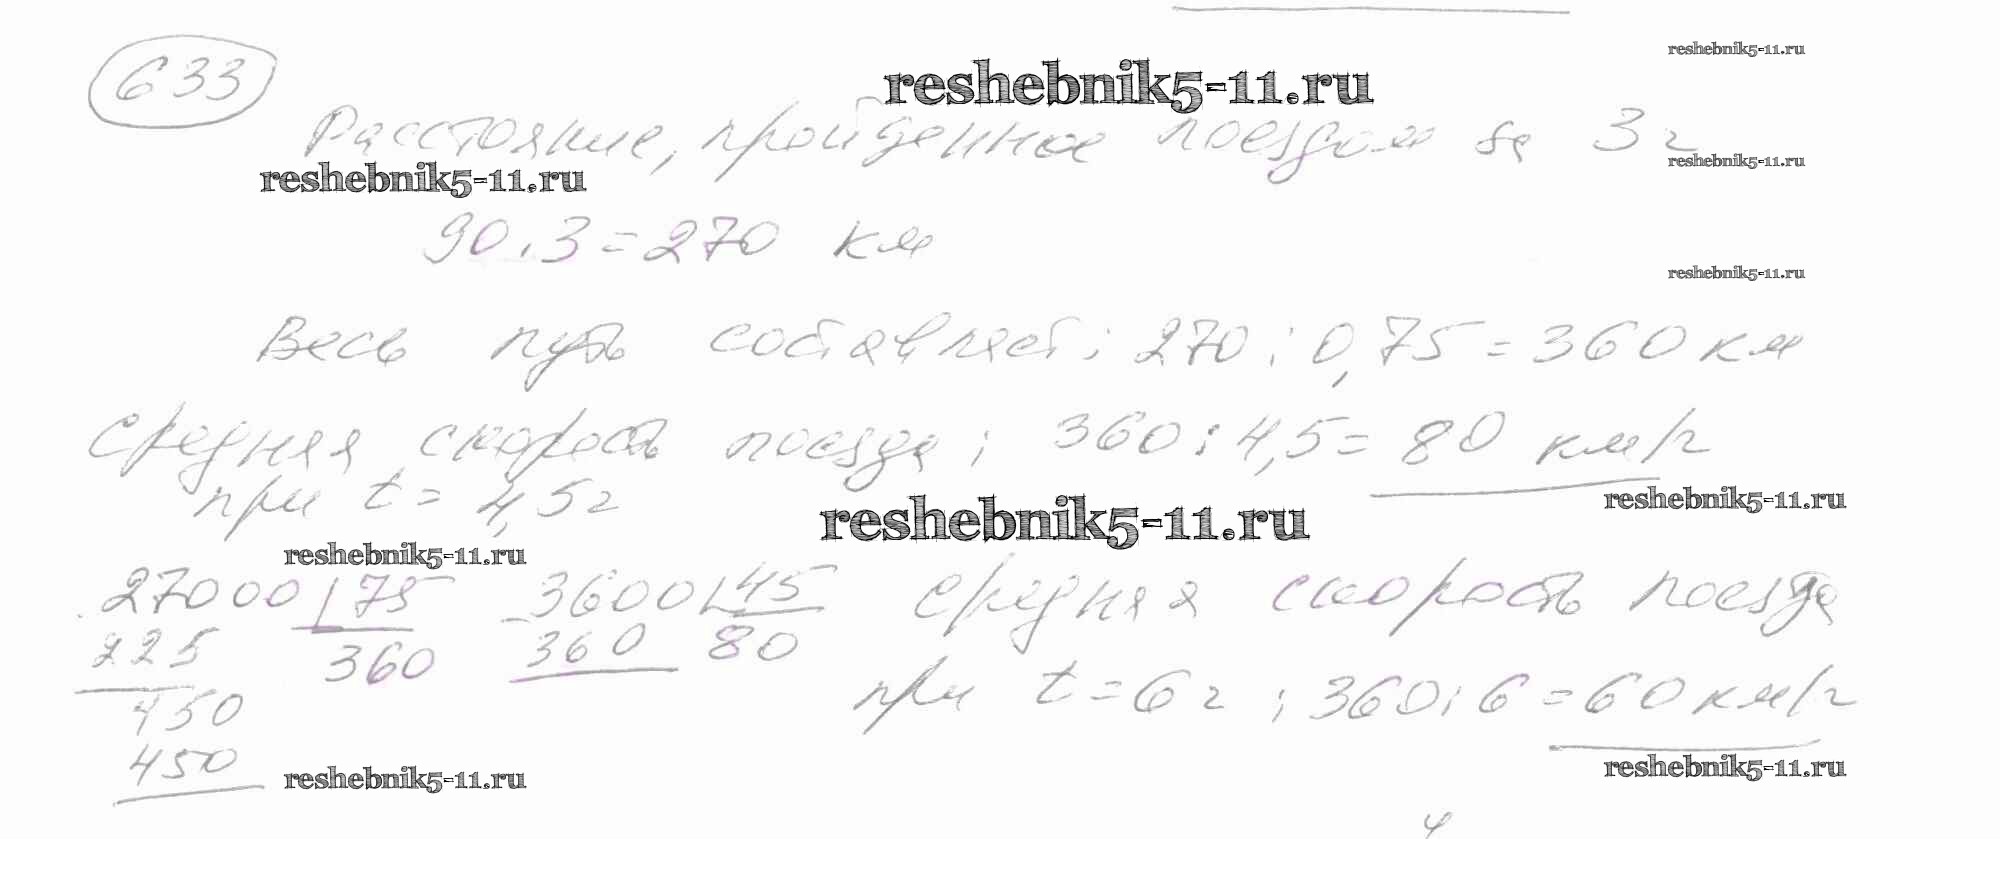 reshebnik5-11.ru
633
reshebnik5-11.ru
Расстояние, пройденное поездом за 3 ч
reshebnik5-11.ru
reshebnik5-11.ru
90 · 3 = 270 км
reshebnik5-11.ru
Весь путь составляет: 270 : 0,75 = 360 км
средняя скорость поезда: 360 : 4,5 = 80 км/ч
при t = 4,5 ч
reshebnik5-11.ru
reshebnik5-11.ru
reshebnik5-11.ru
27000 | 75
225 360
450
450
3600 | 45
360 80
средняя скорость поезда
при t = 6 ч : 360 : 6 = 60 км/ч
reshebnik5-11.ru
reshebnik5-11.ru